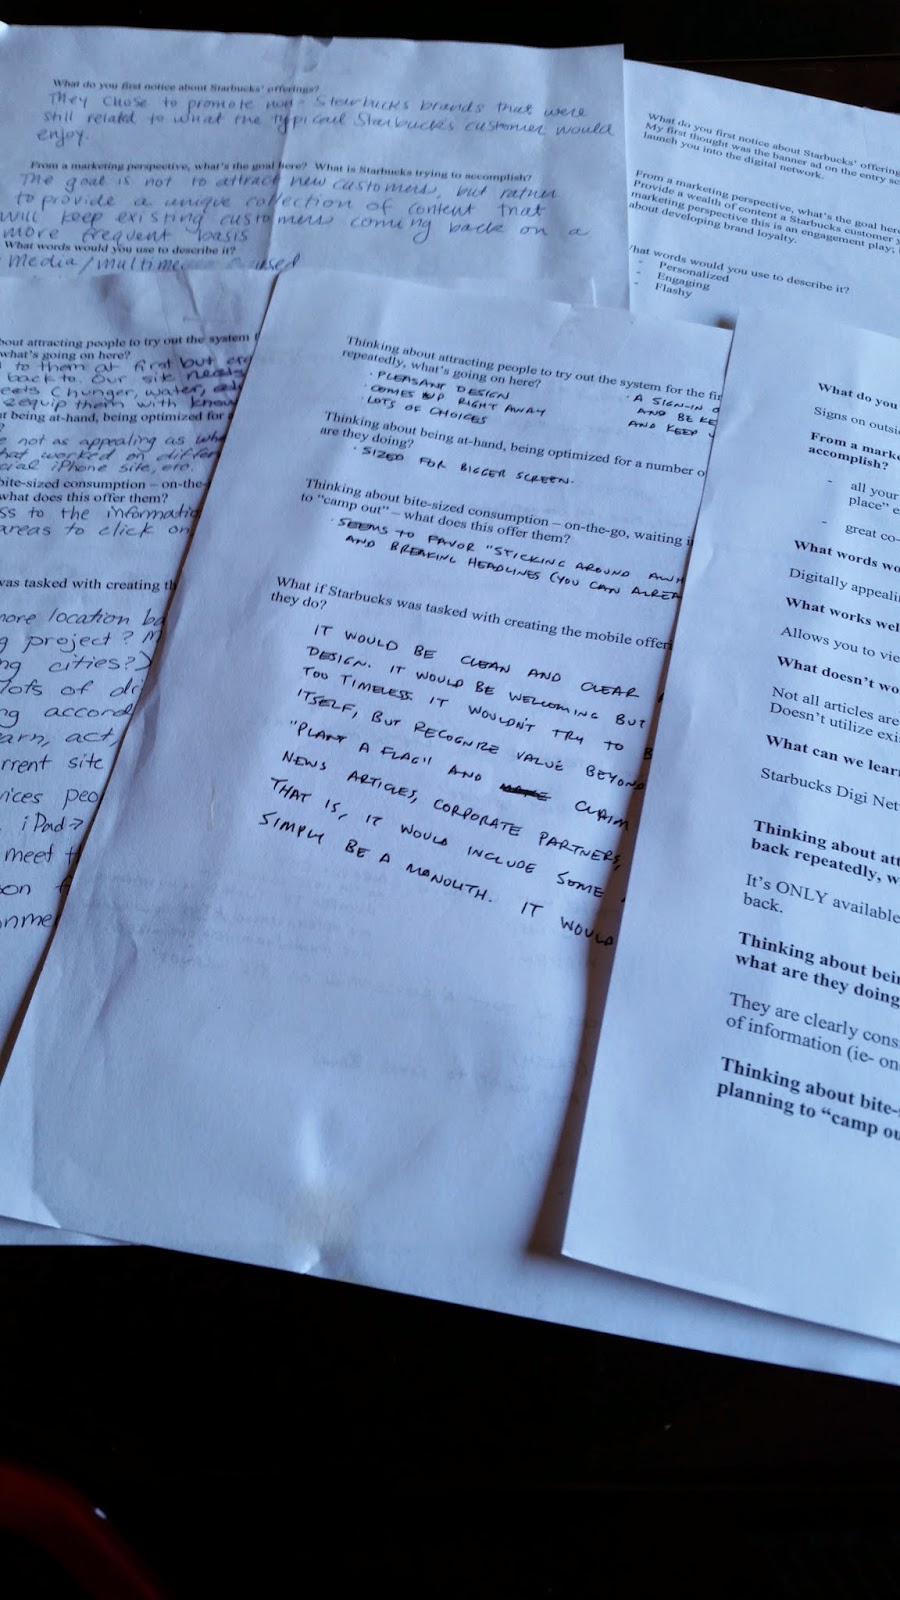 What do you first notice about Starbucks' offerings?
They chose to promote non-Starbucks brands that were
still related to what the typical Starbucks customer would
enjoy.
From a marketing perspective, what's the goal here? What is Starbucks trying to accomplish?
The goal is not to attract new customers, but rather
to provide a unique collection of content that
will keep existing customers coming back on a
more frequent basis
What words would you use to describe it?
Media/multimedia
What do you first notice about Starbucks' offering
My first thought was the banner ad on the entry
launch you into the digital network.
From a marketing perspective, what's the goal here
Provide a wealth of content a Starbucks customer
marketing perspective this is an engagement play;
about developing brand loyalty.
What words would you use to describe it?
- Personalized
- Engaging
- Flashy
bout attracting people to try out the system
what's going on here?
to them at first but
back to. Our site needs
(hunger, water,
equip them with know
t being at-hand, being optimized for a
e not as appealing as
that worked on differ
cial iPhone site, etc.
bite-sized consumption – on-the-
what does this offer them?
ss to the informatio
areas to click on
was tasked with creating th
more location ba
g project?
ng cities?)
lots of di
ng accord
earn, act,
rrent site
vices peo
iPad→
meet t
on
onme
Thinking about attracting people to try out the system for the fir
repeatedly, what's going on here?
· PLEASANT DESIGN
· COMES UP RIGHT AWAY
· LOTS OF CHOICES
· A SIGN-IN
AND BE KE
AND KEEP
Thinking about being at-hand, being optimized for a number o
are they doing?
· SIZED FOR BIGGER SCREEN.
Thinking about bite-sized consumption – on-the-go, waiting i
to "camp out" – what does this offer them?
· SEEMS TO FAVOR "STICKING AROUND AWH
AND BREAKING HEADLINES (YOU CAN ALREA
What if Starbucks was tasked with creating the mobile offeri
they do?
IT WOULD BE CLEAN AND CLEAR
DESIGN. IT WOULD BE WELCOMING BUT
TOO TIMELESS. IT WOULDN'T TRY TO B
ITSELF, BUT RECOGNIZE VALUE BEYOND
"PLANT A FLAG" AND CLAIM
NEWS ARTICLES, CORPORATE PARTNERS,
THAT IS, IT WOULD INCLUDE SOME
SIMPLY BE A MONOLITH. IT WOULD
What do you
Signs on outsi
From a mark
accomplish?
- all your
place" e
- great co-
What words wo
Digitally appeali
What works wel
Allows you to vie
What doesn't wo
Not all articles are
Doesn't utilize exi
What can we lear
Starbucks Digi Net
Thinking about att
back repeatedly, w
It's ONLY available
back.
Thinking about bei
what are they doing
They are clearly cons
of information (ie- on
Thinking about bite-
planning to "camp ou